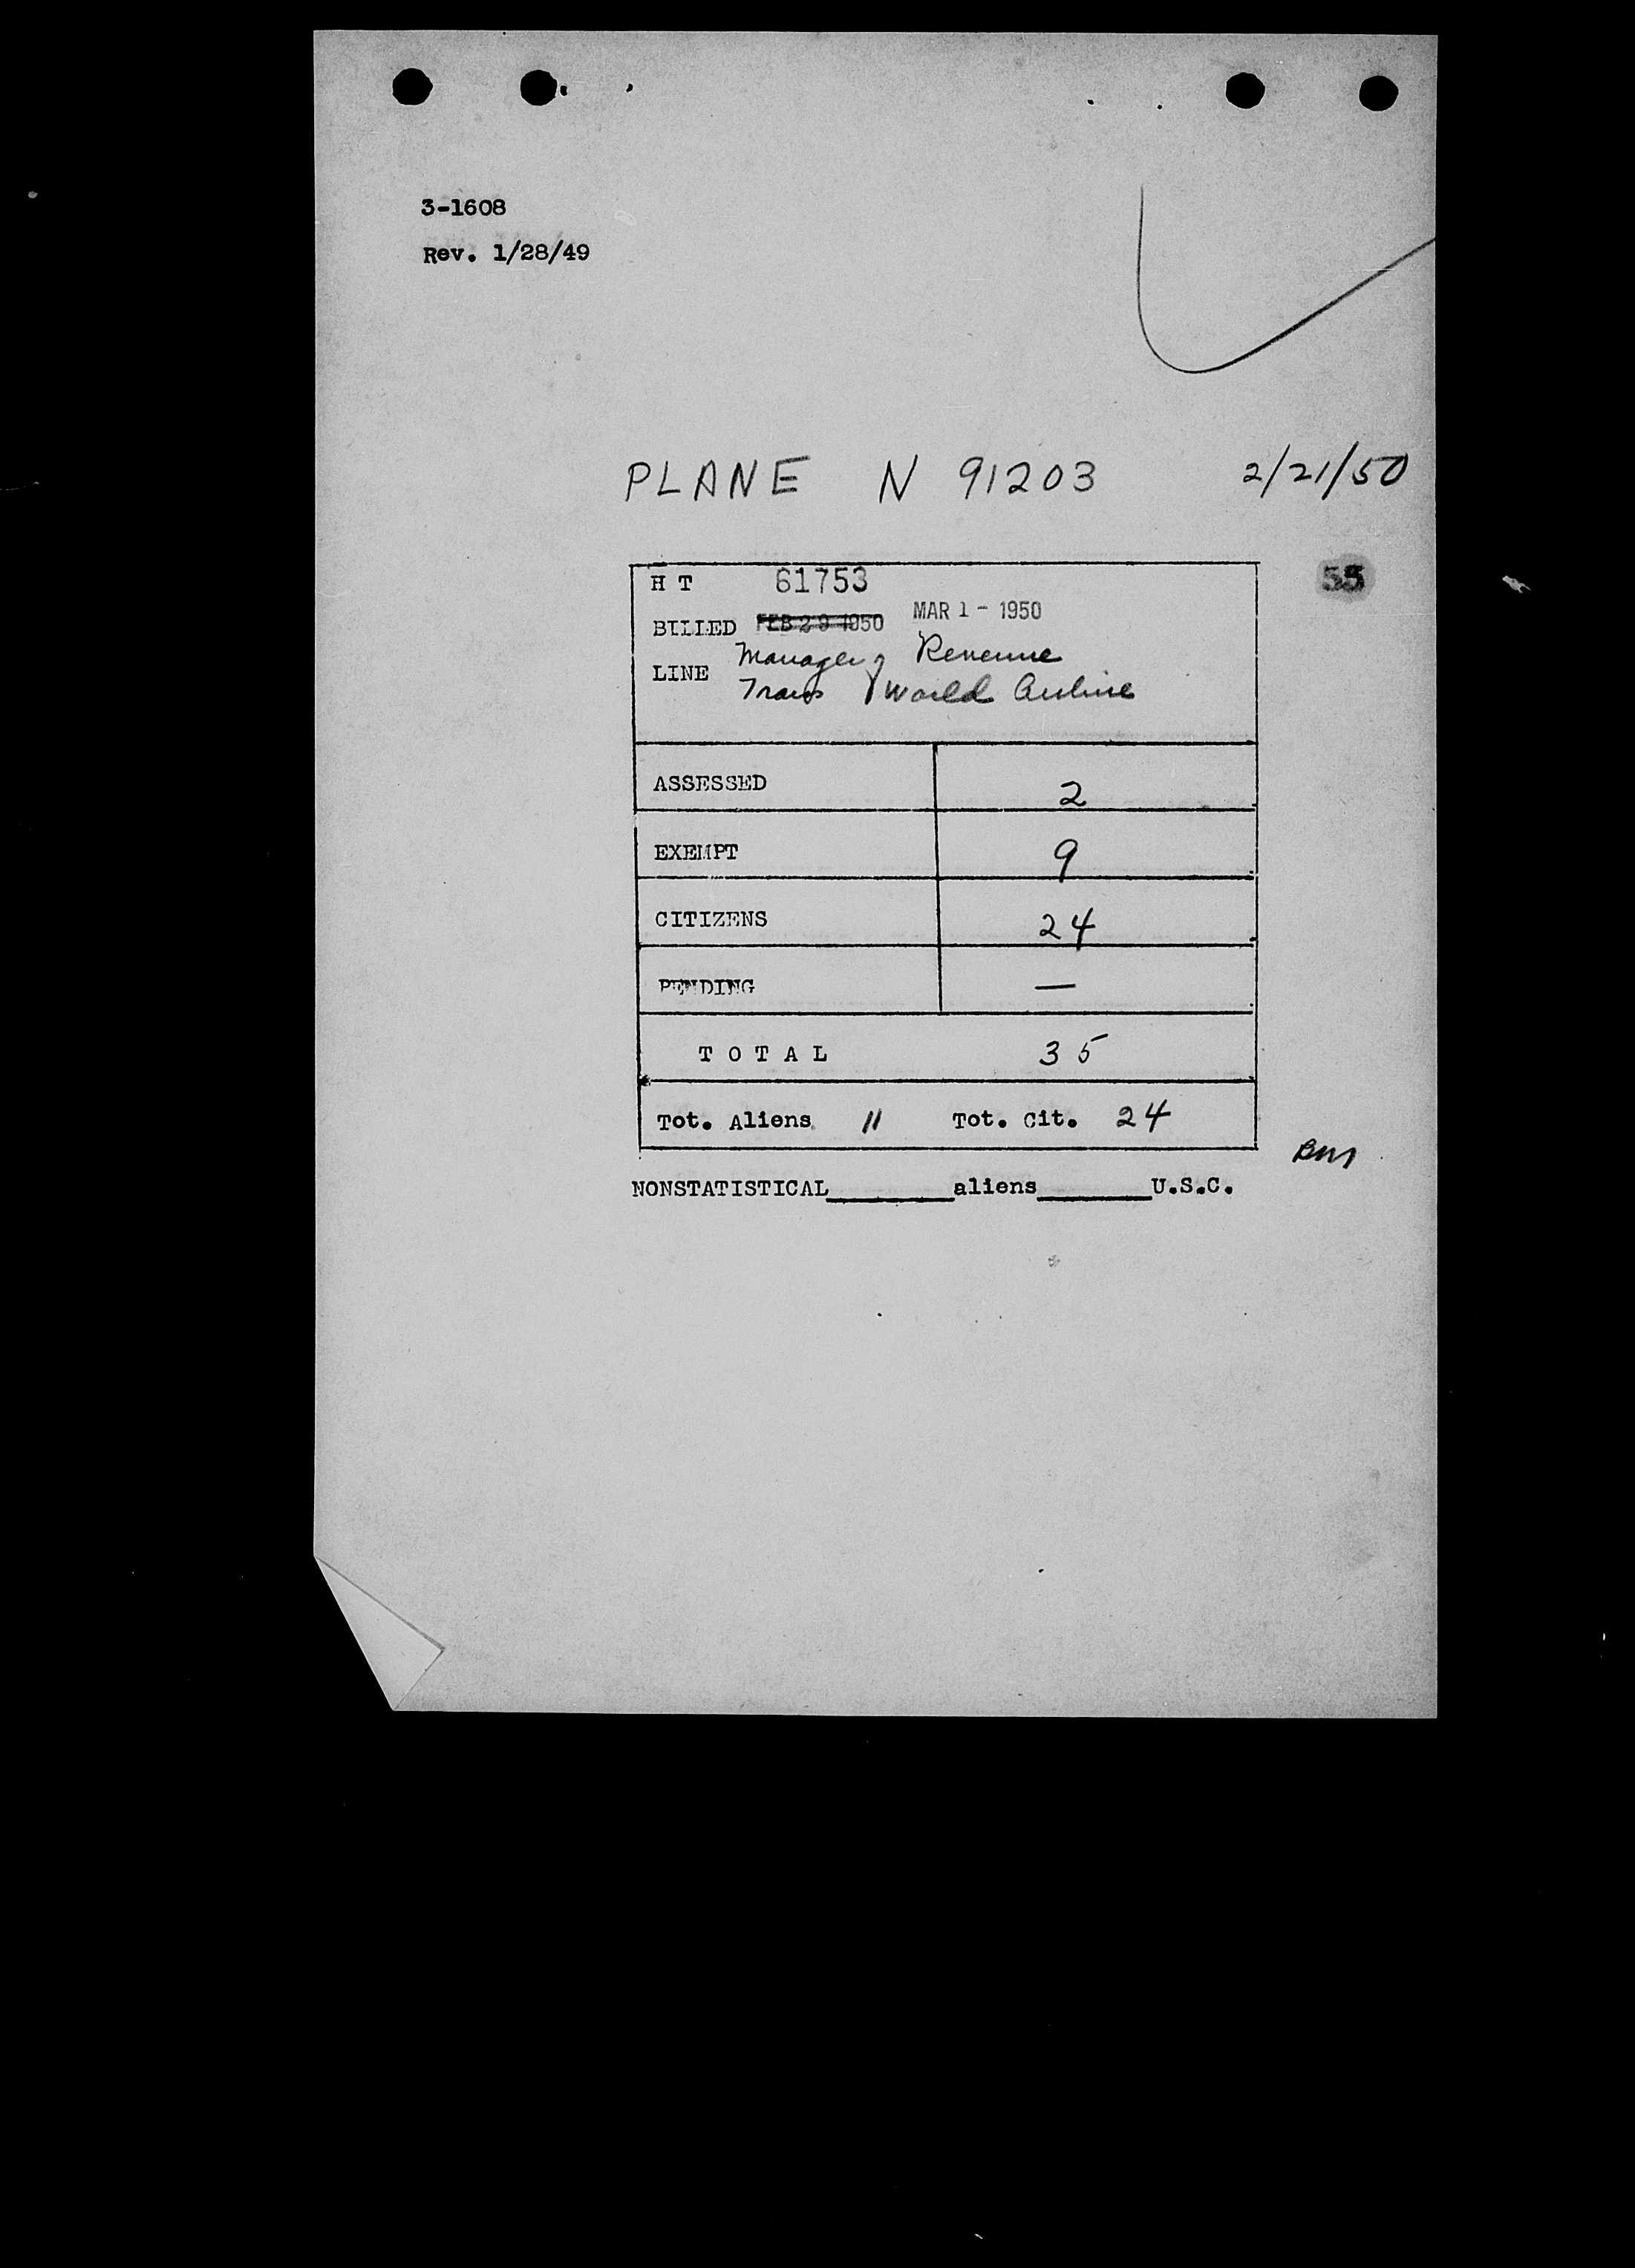 3-1608
Rev. 1/28/49
PLANE N 91203 2/21/50
H T 61753
BILLED FEB 29 1950 MAR 1 - 1950
LINE Manager of Revenue
Trans World Airline
ASSESSED 2
EXEMPT 9
CITIZENS 24
PENDING —
TOTAL 35
Tot. Aliens 11 Tot. Cit. 24
NONSTATISTICAL________aliens_______U.S.C.